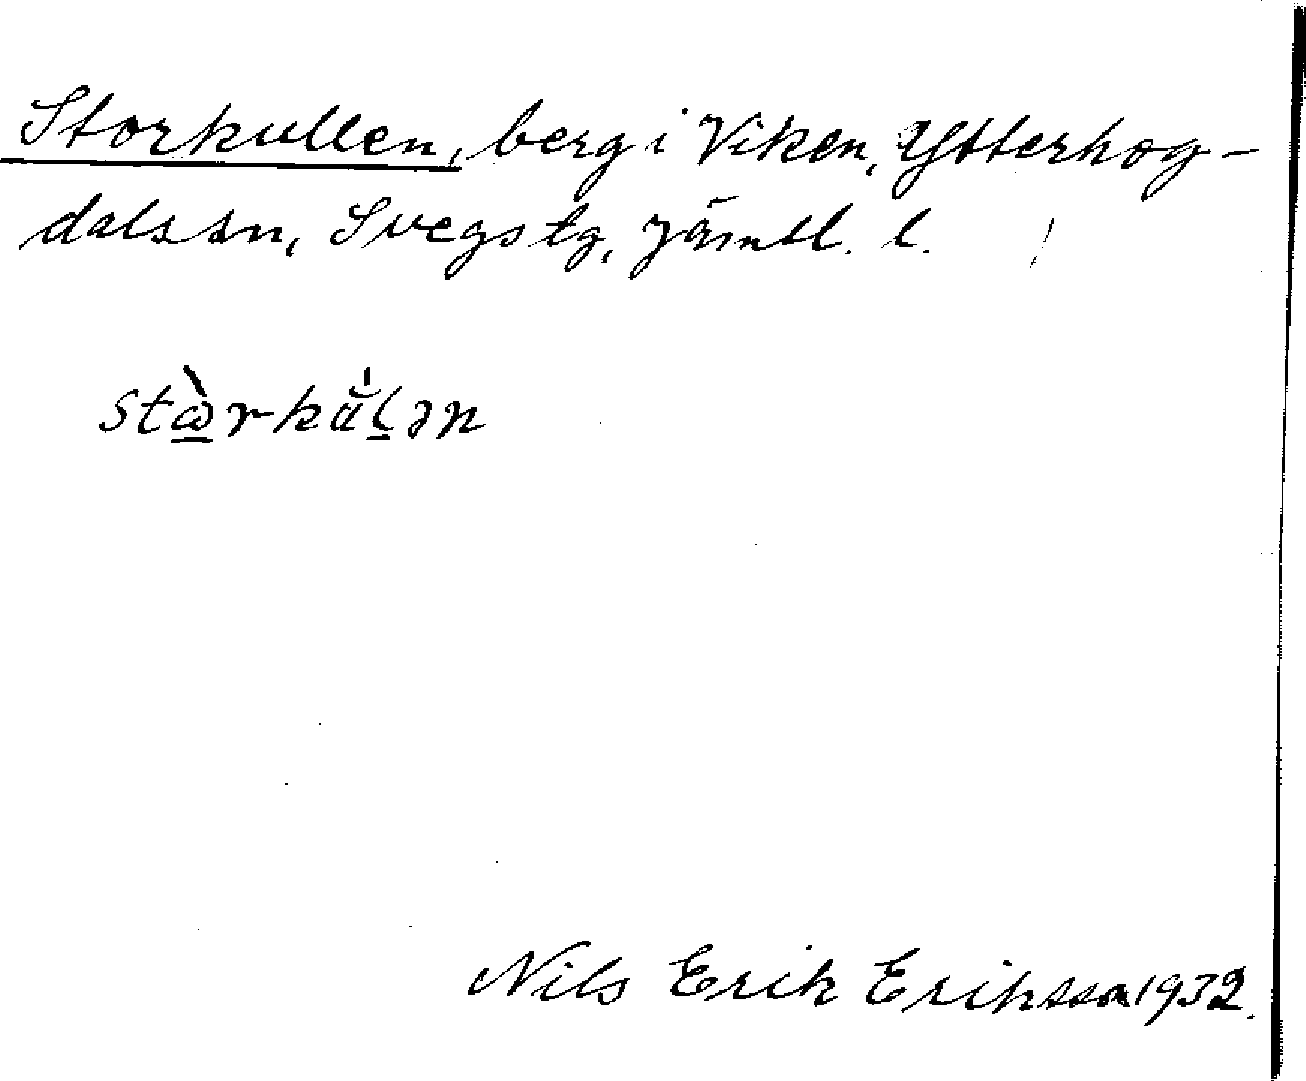 Storkullen, berg i Viken, Ytterhog-
dals sn, Svegs tg, Jämtl. l.
Nils Erik Eriksson 1932.